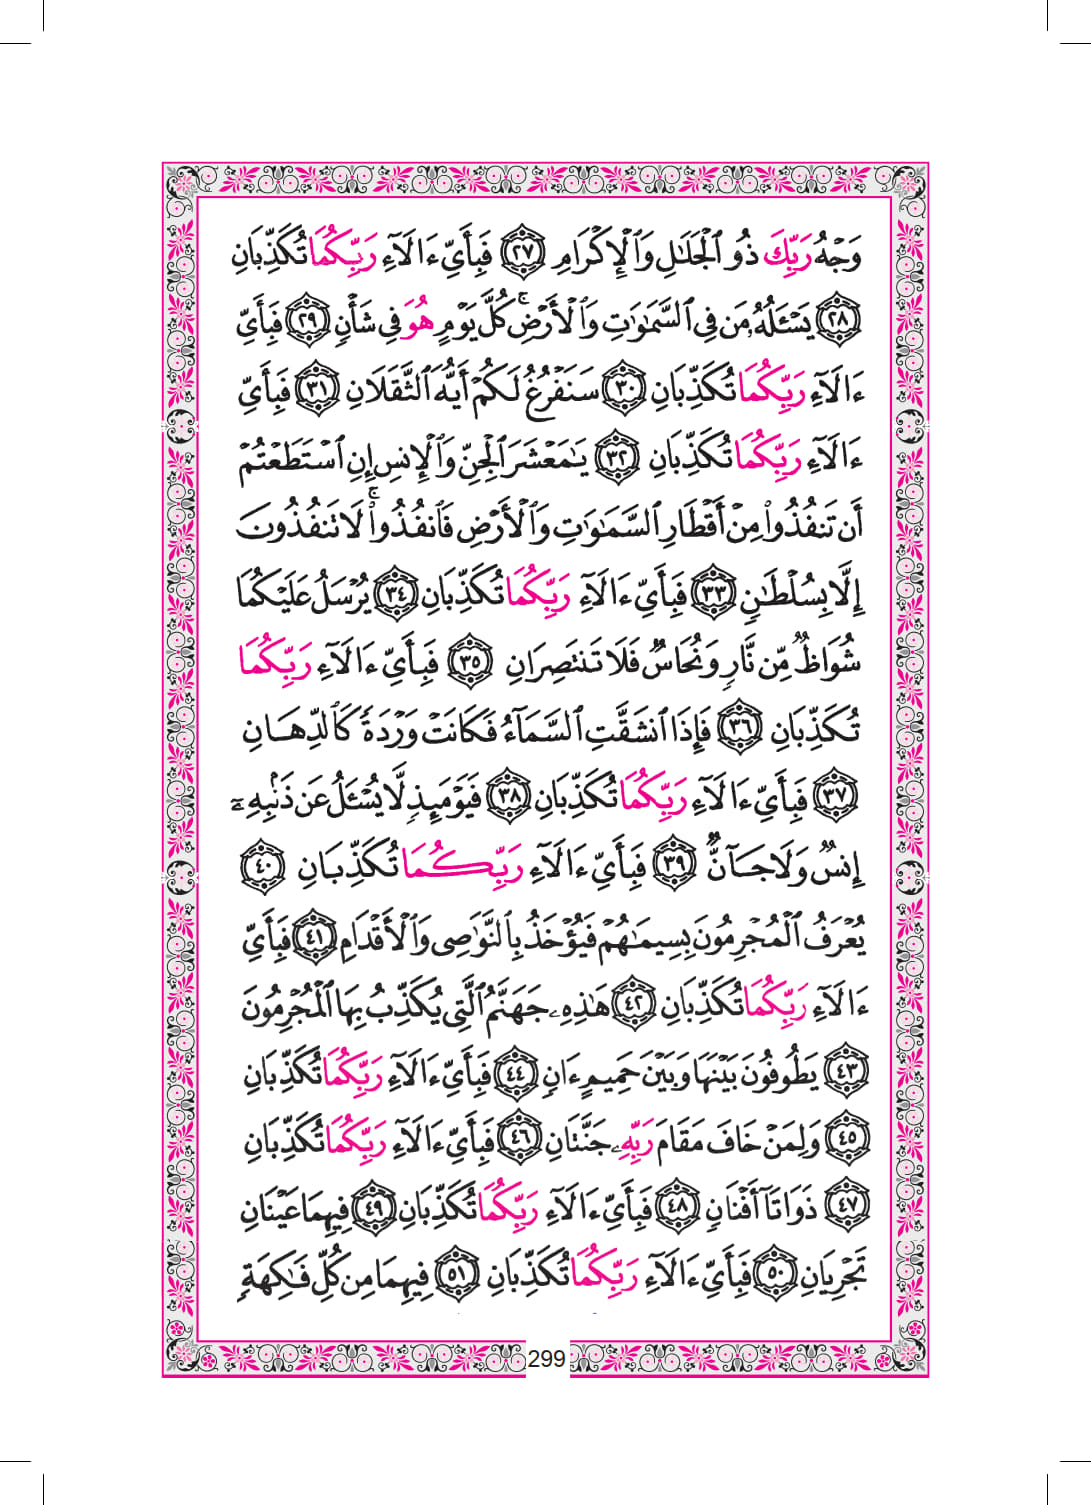 وَجْهُ رَبِّكَ ذُو ٱلْجَلَٰلِ وَٱلْإِكْرَامِ ٢٧ فَبِأَيِّ ءَالَآءِ رَبِّكُمَا تُكَذِّبَانِ
٢٨ يَسْـَٔلُهُۥ مَن فِى ٱلسَّمَٰوَٰتِ وَٱلْأَرْضِ ۚ كُلَّ يَوْمٍ هُوَ فِى شَأْنٍ ٢٩ فَبِأَيِّ
ءَالَآءِ رَبِّكُمَا تُكَذِّبَانِ ٣٠ سَنَفْرُغُ لَكُمْ أَيُّهَ ٱلثَّقَلَانِ ٣١ فَبِأَيِّ
ءَالَآءِ رَبِّكُمَا تُكَذِّبَانِ ٣٢ يَٰمَعْشَرَ ٱلْجِنِّ وَٱلْإِنسِ إِنِ ٱسْتَطَعْتُمْ
أَن تَنفُذُوا۟ مِنْ أَقْطَارِ ٱلسَّمَٰوَٰتِ وَٱلْأَرْضِ فَٱنفُذُوا۟ ۚ لَا تَنفُذُونَ
إِلَّا بِسُلْطَٰنٍ ٣٣ فَبِأَيِّ ءَالَآءِ رَبِّكُمَا تُكَذِّبَانِ ٣٤ يُرْسَلُ عَلَيْكُمَا
شُوَاظٌ مِّن نَّارٍ وَنُحَاسٌ فَلَا تَنتَصِرَانِ ٣٥ فَبِأَيِّ ءَالَآءِ رَبِّكُمَا
تُكَذِّبَانِ ٣٦ فَإِذَا ٱنشَقَّتِ ٱلسَّمَآءُ فَكَانَتْ وَرْدَةً كَٱلدِّهَانِ
٣٧ فَبِأَيِّ ءَالَآءِ رَبِّكُمَا تُكَذِّبَانِ ٣٨ فَيَوْمَئِذٍ لَّا يُسْـَٔلُ عَن ذَنۢبِهِۦٓ
إِنسٌ وَلَا جَآنٌّ ٣٩ فَبِأَيِّ ءَالَآءِ رَبِّكُمَا تُكَذِّبَانِ ٤٠
يُعْرَفُ ٱلْمُجْرِمُونَ بِسِيمَٰهُمْ فَيُؤْخَذُ بِٱلنَّوَٰصِى وَٱلْأَقْدَامِ ٤١ فَبِأَيِّ
ءَالَآءِ رَبِّكُمَا تُكَذِّبَانِ ٤٢ هَٰذِهِۦ جَهَنَّمُ ٱلَّتِى يُكَذِّبُ بِهَا ٱلْمُجْرِمُونَ
٤٣ يَطُوفُونَ بَيْنَهَا وَبَيْنَ حَمِيمٍ ءَانٍ ٤٤ فَبِأَيِّ ءَالَآءِ رَبِّكُمَا تُكَذِّبَانِ
٤٥ وَلِمَنْ خَافَ مَقَامَ رَبِّهِۦ جَنَّتَانِ ٤٦ فَبِأَيِّ ءَالَآءِ رَبِّكُمَا تُكَذِّبَانِ
٤٧ ذَوَاتَآ أَفْنَانٍ ٤٨ فَبِأَيِّ ءَالَآءِ رَبِّكُمَا تُكَذِّبَانِ ٤٩ فِيهِمَا عَيْنَانِ
تَجْرِيَانِ ٥٠ فَبِأَيِّ ءَالَآءِ رَبِّكُمَا تُكَذِّبَانِ ٥١ فِيهِمَا مِن كُلِّ فَٰكِهَةٍ
299